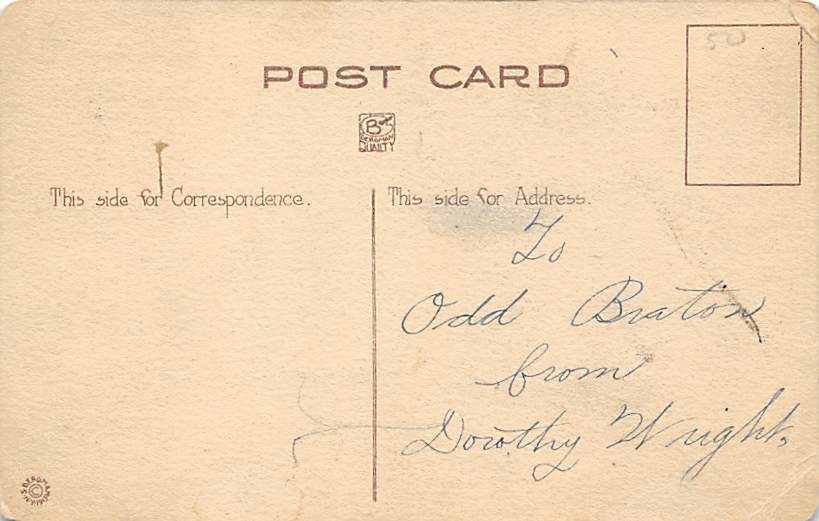 50
POST CARD
B
BERGMAN
QUALITY
This side for Correspondence.
This side for Address.
To
Odd Braton
from
Dorothy Wright.
S. BERGMAN N.Y.
©